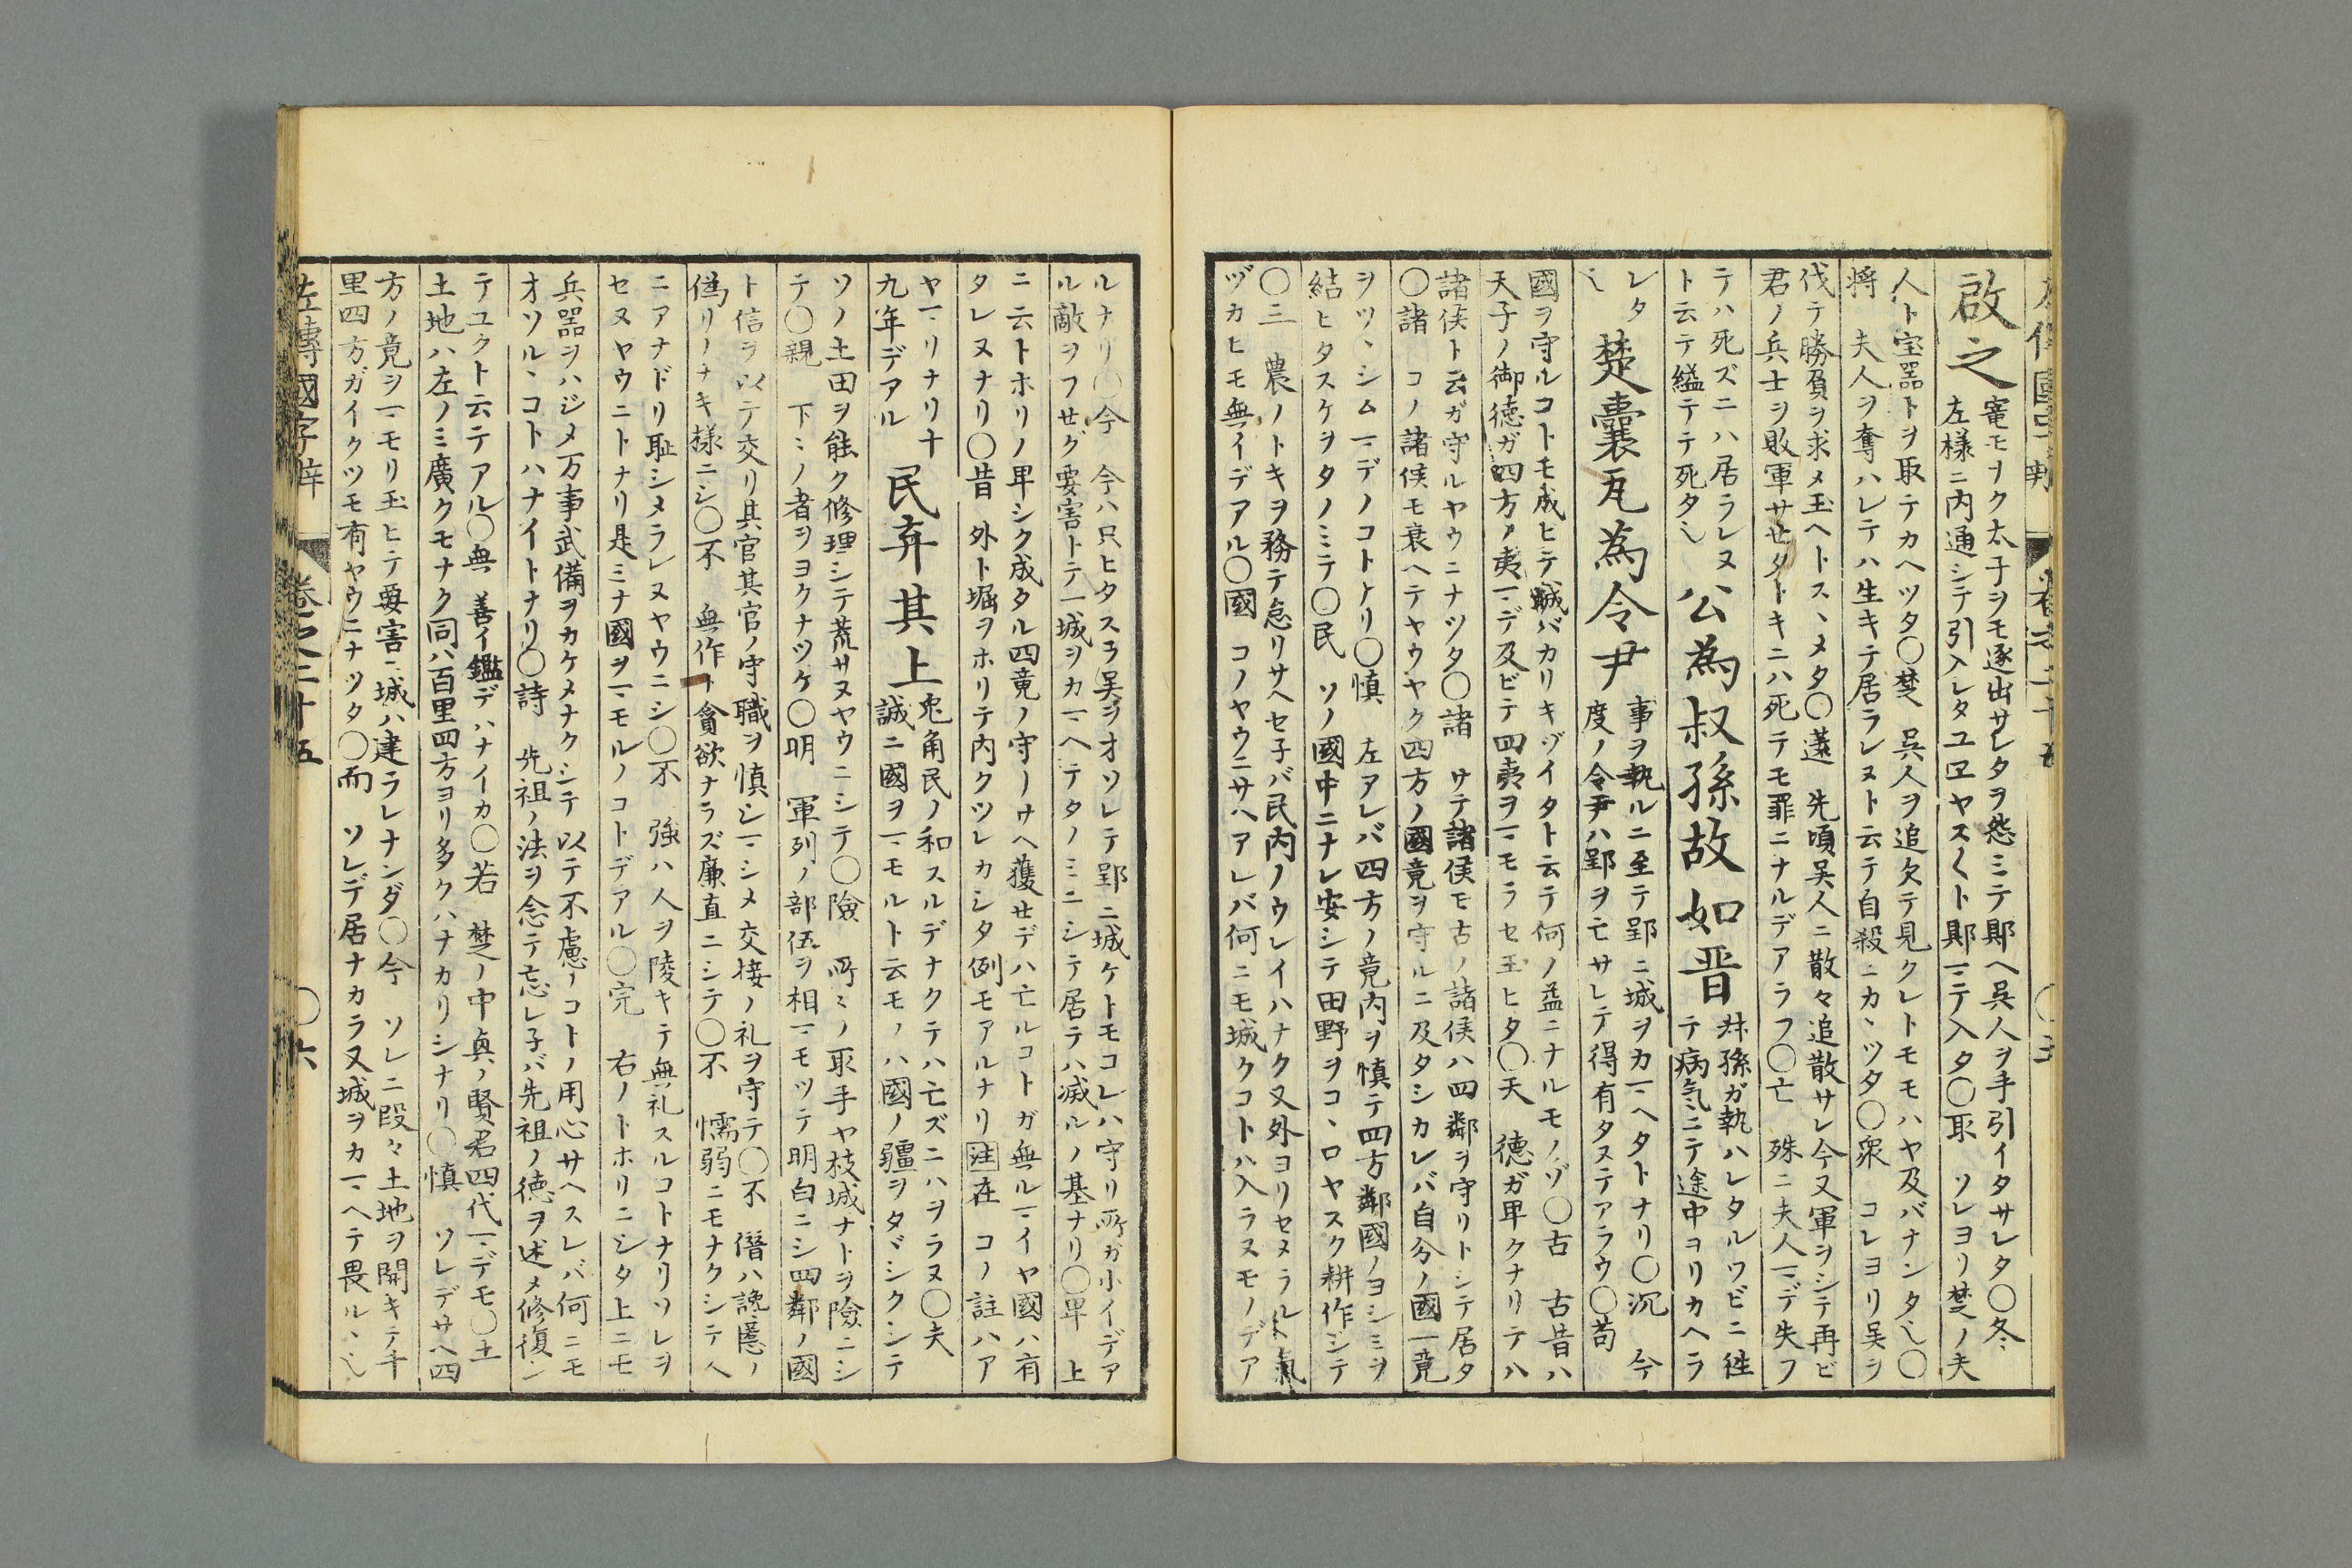 啟之
竃モヲク太子ヲモ逐出サレタヲ怨ミテ郹ヘ呉人ヲ手引イタサレタ〇冬
左様ニ内通シテ引入レタユヱヤスくト郹マデ入タ〇取 ソレヨリ楚ノ夫
人ト宝噐トヲ取テカヘツタ〇楚 呉人ヲ追タテ見クレトモモハヤ及バナンタ〇
將 夫人ヲ奪ハレテハ生キテ居ラレヌト云テ自殺ニカヽツタ〇衆 コレヨリ呉ヲ
伐テ勝負ヲ求メ玉ヘトスヽメタ〇薳 先頃呉人ニ散々追散サレ今又軍ヲシテ再ビ
君ノ兵士ヲ敗軍サセタトキニハ死テモ罪ニナルデアラフ〇亡 殊ニ夫人マデ失フ
テハ死ズニハ居ラレヌ
ト云テ縊テテ死タ
公為叔孫故如晋
叔孫ガ執ハレタルワビニ徃
テ病気ニテ途中ヨリカヘラ
レタ
楚囊瓦為令尹
事ヲ執ルニ至テ郢ニ城ヲカマヘタトナリ〇沉 今
度ノ令尹ハ郢ヲ亡サレテ得有タヌテアラウ〇苟
國ヲ守ルコトモ成ヒテ城バカリキヅイタト云テ何ノ益ニナルモノゾ〇古 古昔ハ
天子ノ御德ガ四方ノ夷マデ及ビテ四夷ヲマモラセ玉ヒタ〇天 德ガ卑クナリテハ
諸侯ト云ガ守ルヤウニナツタ〇諸 サテ諸侯モ古ノ諸侯ハ四鄰ヲ守リトシテ居タ
〇諸 コノ諸侯モ衰ヘテヤウヤク四方ノ國竟ヲ守ルニ及タシカレバ自分ノ國一竟
ヲツヽシムマデノコトナリ〇慎 左アレバ四方ノ竟内ヲ慎テ四方鄰國ノヨシミヲ
結ヒタスケヲタノミテ〇民 ソノ國中ニナレ安シテ田野ヲコヽロヤスク耕作シテ
〇三 農ノトキヲ務テ怠リサヘセ子バ民内ノウレイハナク又外ヨリセメラルヽ氣
ヅカヒモ無イデアル〇國 コノヤウニサヘアレバ何ニモ城クコトハ入ラヌモノデア
ルナリ〇今 今ハ只ヒタスラ呉ヲオソレテ郢ニ城ケトモコレハ守リ所ガ小イデア
ル敵ヲフセグ要害トテ一城ヲカマヘテタノミニシテ居テハ滅ルノ基ナリ〇卑 上
ニ云トホリノ卑シク成タル四竟ノ守ーサヘ獲セデハ亡ルコトガ無ルマイヤ國ハ有
タレヌナリ〇昔 外ト堀ヲホリテ内クツレカシタ例モアルナリ注在 コノ註ハア
ヤマリナリ十
九年デアル
民弃其上
兎角民ノ和スルデナクテハ亡ズニハヲラヌ〇夫
誠ニ國ヲマモルト云モノハ國ノ疆ヲタヾシクシテ
ソノ土田ヲ能ク修理シテ荒サヌヤウニシテ〇險 所ミノ取手ヤ枝城ナトヲ險ニシ
テ〇親 下ミノ者ヲヨクナツケ〇明 軍列ノ部伍ヲ相マモツテ明白ニシ四鄰ノ國
ト信ヲ以テ交リ其官其官ノ守職ヲ慎シマシメ交接ノ礼ヲ守テ〇不 僭ハ譏隱ノ
僞リノナキ様ニシ〇不 無作ト貪欲ナラズ廉直ニシテ〇不 懦弱ニモナクシテ人
ニアナドリ耻シメラレヌヤウニシ〇不 強ハ人ヲ陵キテ無礼スルコトナリソレヲ
セヌヤウニトナリ是ミナ國ヲマモルノコトデアル〇完 右ノトホリニシタ上ニモ
兵噐ヲハジメ万事武備ヲカケメナクシテ以テ不慮ノコトノ用心サヘスレバ何ニモ
オソルヽコトハナイトナリ〇詩 先祖ノ法ヲ念テ忘レ子バ先祖ノ徳ヲ述メ修復シ
テユクト云テアル〇無 善イ鑑デハナイカ〇若 楚ノ中眞ノ賢君四代マデモ〇土
土地ハ左ノミ廣クモナク同ハ百里四方ヨリ多クハナカリシナリ〇慎 ソレデサヘ四
方ノ竟ヲマモリ玉ヒテ要害ヽ城ハ建ラレナンダ〇今 ソレニ段々土地ヲ開キテ千
里四方ガイクツモ有ヤウニナツタ〇而 ソレデ居ナカラ又城ヲカマヘテ畏ルヽ
左傳國字辯 卷之二十五 〇六